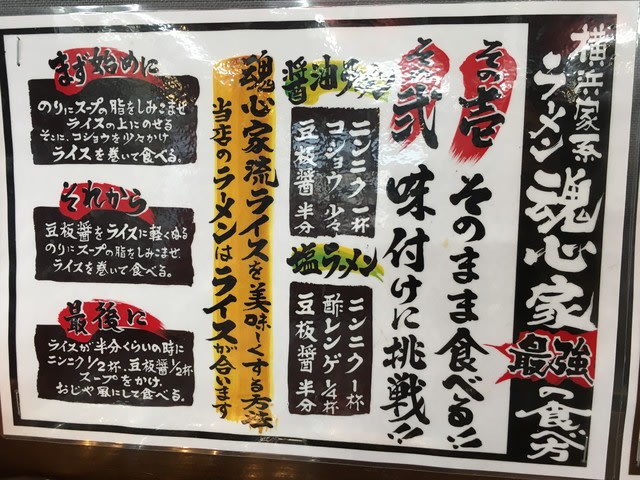 横浜家系
ラーメン魂心家
最強の食べ方
その壱
そのまま食べる!!
その弐
味付けに挑戦!!
醤油ラーメン
ニンニク一杯
コショウ少々
豆板醤 半分
塩ラーメン
ニンニク1杯
酢レンゲ1/4杯
豆板醤 半分
魂心家流ライスを美味しくする方法
当店のラーメンはライスが合います
まず始めに
のりにスープの脂をしみこませ
ライスの上にのせる
そこに、コショウを少々かけ
ライスを巻いて食べる。
それから
豆板醤をライスに軽くぬる
のりにスープの脂をしみこませ
ライスを巻いて食べる。
最後に
ライスが半分くらいの時に
ニンニク1/2杯、豆板醤1/2杯
スープをかけ、
おじや風にして食べる。